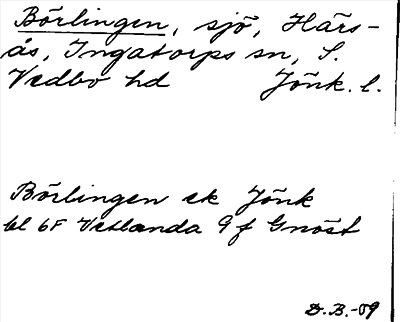 Börlingen, sjö, Härs-
ås, Ingatorps sn, S.
Vedbo hd Jönk. l.
Börlingen ek Jönk
bl 6F Vetlanda 9f Gnöst
D.B.-59